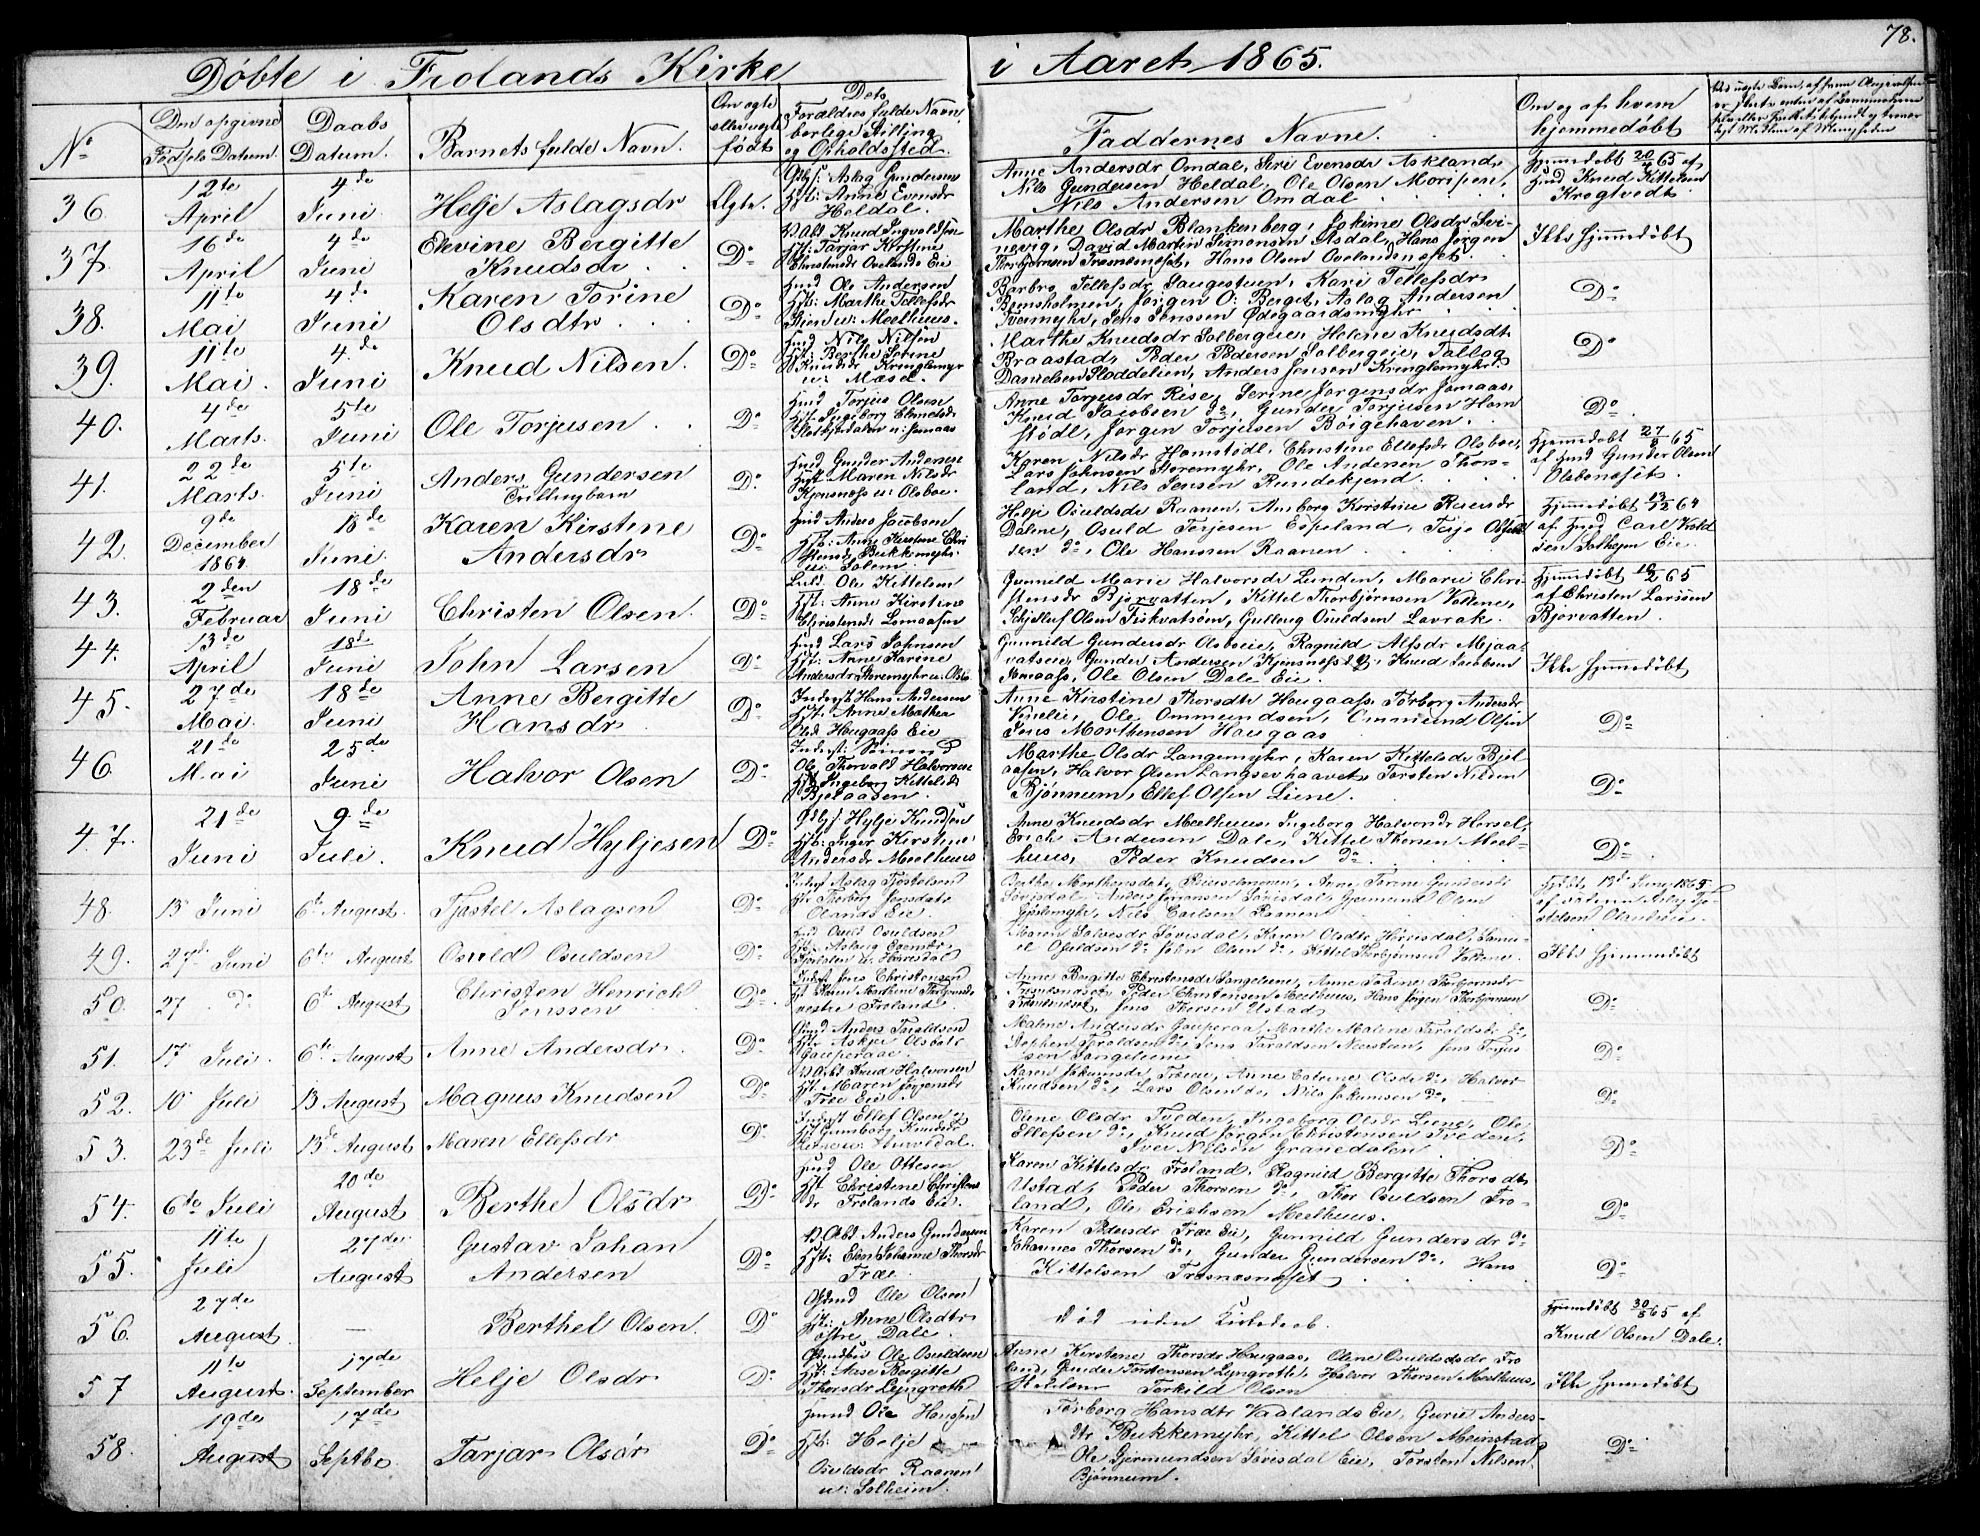 78.
Döbte i Frolands Kirke i Aaret 1865.
No Den opgivne Fødsels Datum. Daabs Datum. Barnets fulde Navn. Om ægte eller uægte født Dets Forældres fulde Navn, borlige Stilling og Opholdssted. Faddernes Navne. Om og af hvem hjemmedøbt
36. 12te April 4de Juni Helje Aslagsdr Ægte. Gbf: Aslag Gundersen Hst: Anne Evensdr Heldal.
Anne Andersdr Omdal, Siri Evensdr Askland, Nils Gundersen Heldal, Ole Olsen Moripen, Nils Andersen Omdal
Hjemmdøbt 20/4 65 af Hmd Knud Kittelsen Krogtvedt
37. 16de April 4de Juni Elevine Bergitte Knudsdr Do Arbd Knud Ingvoldsen Hst: Tarjar Kirstine Christensdr Ovelands Eie
Marthe Olsdr Blankenberg, Jokime Olsdr Svinevig, David Martin Simonsen Asdal, Hans Jørgen Thorbjørnsen Frosnæsnæset, Hans Olsen Ovelandsnæset.
Ikke hjemmdøbt
38. 11te Mai 4de Juni Karen Torine Olsdtr Do Hmd Ole Andersen Hst: Marthe Tellefsdr u: Meelhuus.
Barbro Tellefsdr Saugestuen, Kari Tellefsdr Bjønsholmen, Jørgen O: Berget, Aslag Andersen Tveermyhr, Jens Jenssen Ødegaardsmyhr
Do
39. 11te Mai. 4.de Juni Knud Nilsen. Do Hmd Nils Nilsen Hst: Berthe Torine Knudsdr Kringlemyr u: Mæsel.
Marthe Knudsdr Solbergeie, Helene Knudsdt Braastad, Peder Pedersen Solbergeie, Tallag Danielsen Sloddelien, Anders Jensen Kringlemyhr
Do
40. 4de Marts. 5te Juni Ole Torjusen Do Hmd Torjus Olsen Hst. Ingeborg u: Jomaas
Anne Torjusdr Rise, Serine Jørgensdr Jomaas, Knud Jacobsen do, Gunder Torjusen Homstødl, Jørgen Torjusen Börgehaven.
Do
41. 22de Marts. 5te Juni Anders Gundersen Tvillingbarn Do Hmd Gunder Andersen Hst Maren Nilsdr Kjønsnæs u: Olsboe.
Karen Nilsdr Homstødl, Christine Ellefsdr Olsboe, Lars Johnsen Støremyhr, Ole Andersen Thorsland, Nils Jensen Rundekjend.
Hjemmdøbt 27/3 65 af Hmd Gunder Olsen Olsbonesset.
42. 9de December 1864. 18de Juni. Karen Kirstine Andersdr Do Hmd Anders Jacobsen Hst: Anne Kirstine Christensdr Bukkemyhr u: Solem.
Helje Osuldsdr Raanen, Aasborg Kirstine Dalene, Osuld Terjesen Espeland, Terje do, Ole Hanssen Raanen
Hjemmdøbt 13/12 64 af Hmd Carl Solhejm Eie.
43. 2den Februar 18de Juni Christen Olsen. Do Ole Kittelsen Hst: Anne Kirstine Christensdr
Gunnild Marie Halvorsdr Lunden, Marie Christensdr Bjørvatten, Kittel Thorbjørnsen Vallene, Schjelluf Olsen Fiskvatsøen, Gulleug Osuldsen Lavrak.
Hjemmdøbt 10/2 65 af Christen Larssen Bjørvatten.
44. 13de April 18de Juni John Larsen Do Hmd Lars Johnsen Hst: Anne Karine Andersdr Støremyhr u: Olsbo
Gunnild Gundersdr Olsboeie, Ragnild Alfsdr Mjaavatseie, Gunder Andersen Kjønsnæs, Knud Jacobsen Jomaas, Ole Olsen Dale Eie.
Ikke hjemmdøbt
45. 27de Mai. 18de Juni Anne Bergitte Hansdr Do Inderst Hans Andersen Hst: Anne Mathea Olsdr Hougaas Eie
Anne Kirstine Thorsdtr Hougaas, Torborg Andersdr, Ole Ommundsen, Ommund Olsen, Jens Morthensen Haugaas
Do
46. 21de Mai 25de Juni Halvor Olsen Do Inderst: Ole Thorvald Halvorsen Hst: Ingeborg Kittelsdr Bjelaasen.
Marthe Olsdr Langemyhr, Karen Kittelsdr Bjelaasen, Halvor Olsen Langsevhaavet, Torsten Nilsen Bjønnum, Ellef Olsen Liene.
Do
47. 21de Juni 9de Juli. Knud Hyljesen Do Gbf Hylje Knudsen Hst: Inger Kirstine Andersdr Meelhuus
Anne Knudsdr Meelhuus, Ingeborg Halvorsdr Hersel, Erich Andersen Dale, Kittel Thorsen Meelhuus, Peder Knudsen do
Do
48. 13 Juni 6te August. Tjøstel Aslagsen Do Inderst Aslag Tjøstelsen Hst Thorborg Jonsdatr Olands Eie.
Berthe Morthensdat, Anne Torine Gundersdr Løvjsdal, Anders Jørgensen Løvisdal, Germund Olsen, Nils Carlsen Raanen
13de Juny 1865 af Aslag Tjøstelsen Olandseie.
49. 27de Juni 6te August Osuld Osuldsen Do Hmd Osuld Osuldsen Hst: Aslaug u: Hørrisdal
Maren Salvesdr Løvisdal, Karen Olsdtr Hørrisdal, Samuel Osuldsen do John Olsen do, Kittel Thorbjørnsen Vallene.
Ikke hjemmedøbt
50. 27 do 6te August Christen Henrich Jenssen Do Inderst Jens Christensen Hst Karen Mathine Thorbjørnsdr vestre Froland
Anne Birgitte Christensdr Songeleene, Anne Torine Thorbjørnsdr, Peder Christensen Meelhuus, Hans Jørgen Thorbjørnsen, Jens Thorsen Ustad
Do
51. 17 Juli. 6te August Anne Andersdr. Do Gmd Anders Taraldsen Hst Askjer Olsdatr Gauperaae.
Malene Andersdr Gauperaa, Marthe Malene Taraldsdr do, Stephen Taraldsen do, Jens Taraldsen Neersteen, Jens Songeleene
Do
52. 10 Juli 13 August Magnus Knudsen Do Arbd Knud Halvorsen Hst: Maren Jørgensdr Træe Eie.
Karen Jokumsdr, Træeie, Anne Catrine Olsdr do, Halvor Knudsen do, Lars Olsen do, Nils Jokumsen do.
Do
53. 23de Juli 13de August Maren Ellefsdr Do Inderst Ellef Olsen Gunnborg Knudsdr
Olene Olsdr Tveden, Ingeborg Olsdr Liene, Ole Ellefsen do, Knud Jørgen Christensen Tveden, Iver Nilsen Granedalen
Do
54. 6te Juli 20de August Berthe Olsdr Do Hmd Ole Ottesen Hst Christine Christensdr Frolands Eie.
Karen Kittelsdr Froland, Ragnild Bergitte Thorsdtr Ustad, Peder Thorsen do, Thor Osuldsen Froland, Ole Erichsen Meelhuus.
Do
55. 11te Juli 27de August Gustav Johan Andersen Do Arbd Anders Gundersen Hst: Elen Johanne Thorsdr Træe
Karen Pedersdr Træ Eie, Gunnild Gundersdr do Johannes Thorsen do, Gunder Gundersen do, Hans Kittelsen Frosnæsnæset
Do
56. 27de August — Berthel Olsen. Do Gbmd Ole Olsen Hst: Anne Olsdtr østre Dale.
Død uden Kirkedaab.
Hjemmdøbt 30/8 65 af Knud Olsen Dale.
57 11te August. 17de September Helje Olsdr Do Ole Osuldsen Hst: Aase Bergitte Thorsdr Lyngroth
Anne Kirstene Thorsdr Hougaas, Olene Osuldsdr Froland, Gunder Torstensen Lyngrothe, Halvor Thorsen Meelhuus, Torkild Olsen
Ikke hjemmdøbt
58. 19de August 17de Septbr. Tarjar Olsdr Do Hmd Ole Hansen Hst: Helje Osuldsdr Raanen u: Solheim.
Torborg Hansdtr Vaalands Eie, Gurie Andersdtr Bukkemyhr, Kittel Olsen Meinstad, Ole Gjermundsen Løvisdal Eie, Torsten Nilsen Bjønnum.
Do